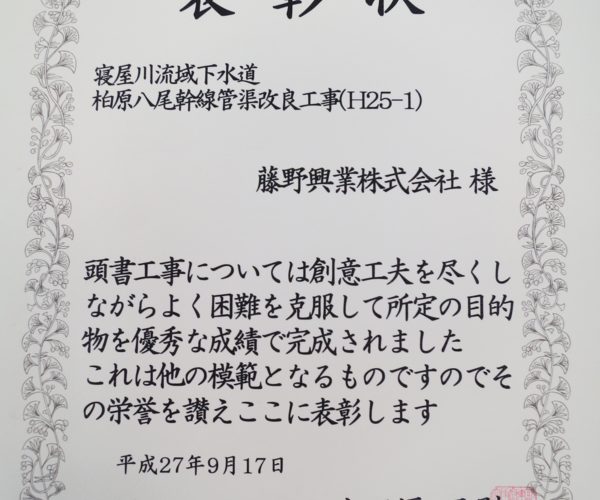 表彰状
寝屋川流域下水道
柏原八尾幹線管渠改良工事(H25-1)
藤野興業株式会社 様
頭書工事については創意工夫を尽くし
ながらよく困難を克服して所定の目的
物を優秀な成績で完成されました
これは他の模範となるものですのでそ
の栄誉を讃えここに表彰します
平成27年9月17日